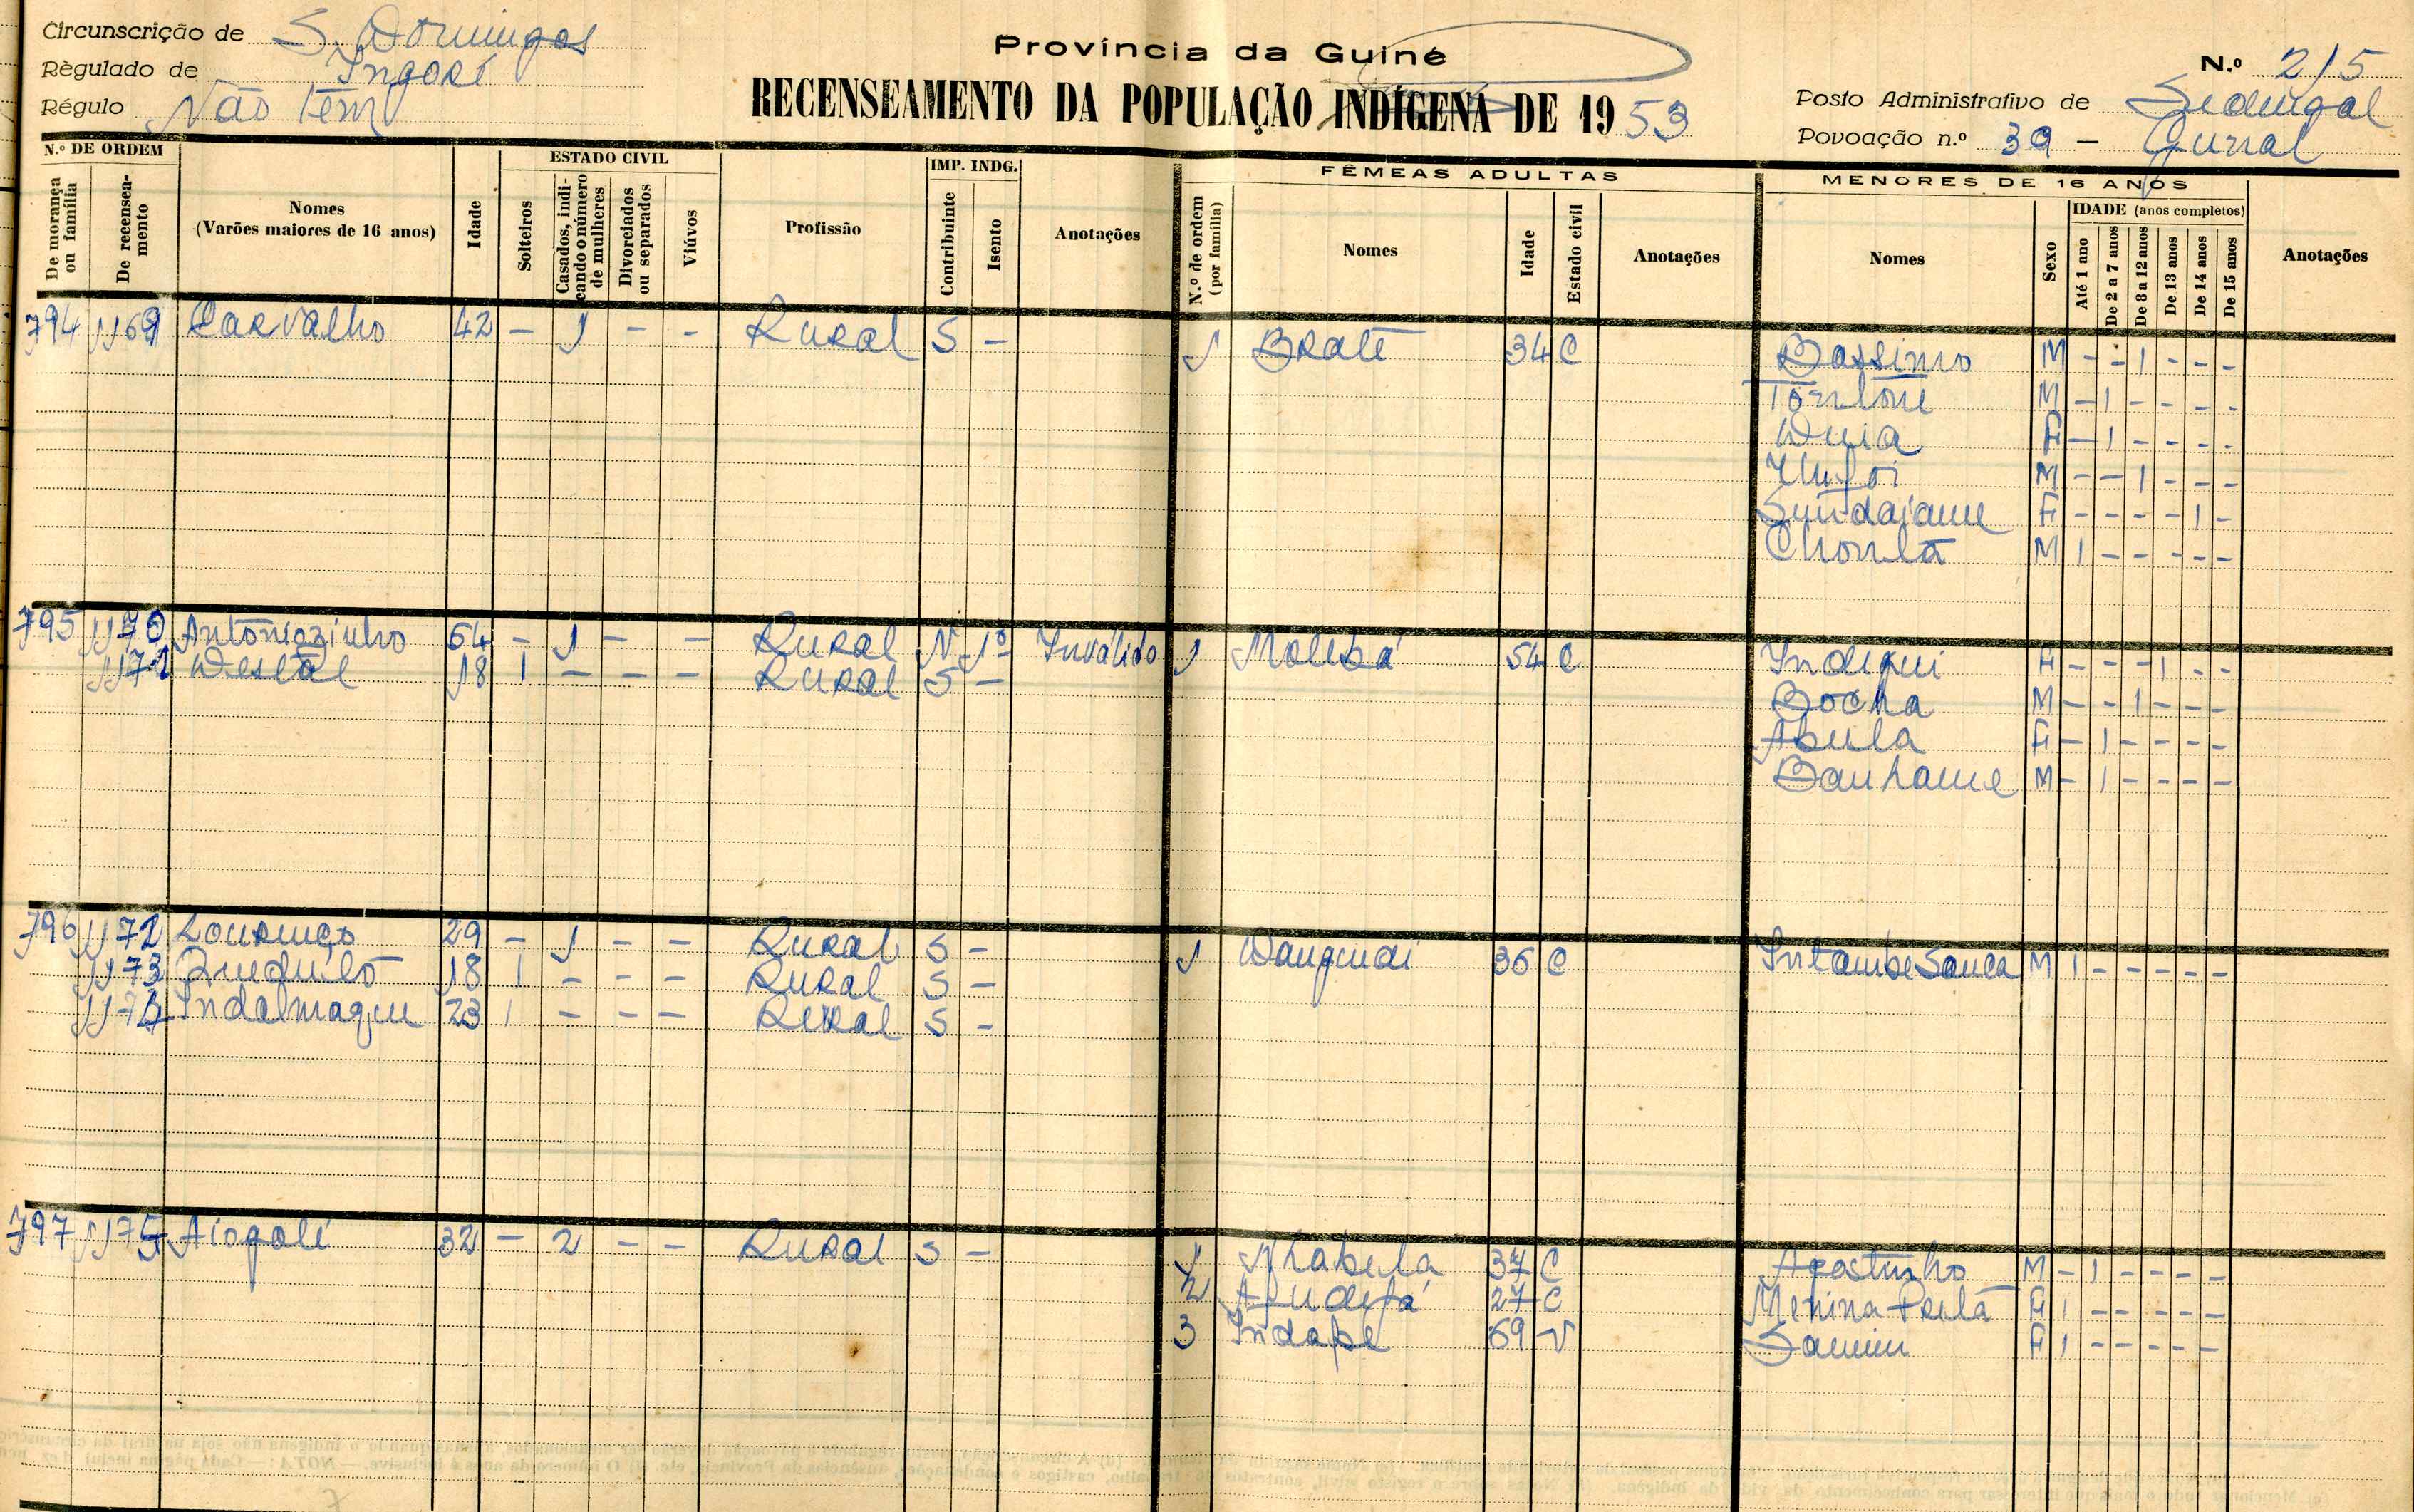 Circunscrição de S. Domingos
Règulado de Ingoré
Régulo Não tem
Província da Guiné
RECENSEAMENTO DA POPULAÇÃO INDÍGENA DE 1953
N.º 215
Posto Administrativo de Sedengal
Povoação n.º 39 - Gurral
N.º DE ORDEM
De morança ou família
De recenseamento
Nomes (Varões maiores de 16 anos)
Idade
ESTADO CIVIL
Solteiros
Casados, indicando o número de mulheres
Divorciados ou separados
Viúvos
Profissão
IMP. INDG.
Contribuinte
Isento
Anotações
FÊMEAS ADULTAS
N.º de ordem (por família)
Nomes
Idade
Estado civil
Anotações
MENORES DE 16 ANOS
Nomes
Sexo
IDADE (anos completos)
Até 1 ano
De 2 a 7 anos
De 8 a 12 anos
De 13 anos
De 14 anos
De 15 anos
Anotações
794 1169 Carvalho 42 - 1 - - Rural S - 1 Braté 34 C Bassinro M - - 1 - - -
M - 1 - - - -
Duia F - 1 - - - -
Unfoi M - - 1 - - -
Sundajame F - - - - 1 -
M 1 - - - - -
795 1170 Antoniozinho 64 - 1 - - Rural N 1º Inválido 1 Maluba 54 C Indequi F - - - 1 - -
1171 18 1 - - - Rural S - Bocha M - - 1 - - -
Abula F - 1 - - - -
Banhame M - 1 - - - -
796 1172 Lourenço 29 - 1 - - Rural S - 1 Dangudi 36 C Intambe Sanca M 1 - - - - -
1173 18 1 - - - Rural S -
1174 Indalmaque 23 1 - - - Rural S -
797 1175 Aiogalé 32 - 2 - - Rural S - 1 Nhabela 37 C Agostinho M - 1 - - - -
2 27 C Menina F 1 - - - - -
3 Indape 69 V Samim F 1 - - - - -